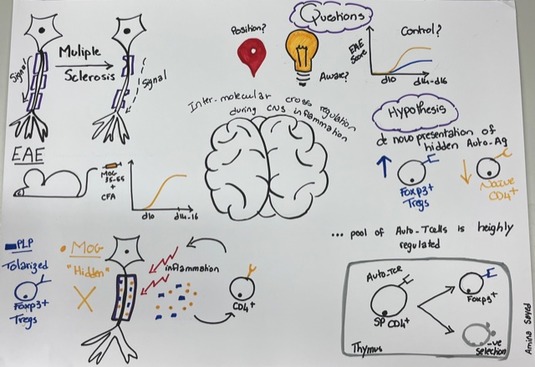 Muliple
Sclerosis
Signal
Signal
Questions
Position?
Aware?
Control?
EAE
Score
d10
d14-d16
Inter-molecular cross regulation
during CNS inflammation
Hypothesis
de novo presentation of
hidden Auto-Ag
Foxp3+
Tregs
Naive
CD4+
EAE
MOG
35-55
+
CFA
d10
d14-16
... pool of Auto-Tcells is heighly
regulated
PLP
Tolarized
Foxp3+
Tregs
MOG
"Hidden"
inflammation
CD4+
Auto-TCR
SP CD4+
Foxp3+
-ve
selection
Thymus
Amina Sayed